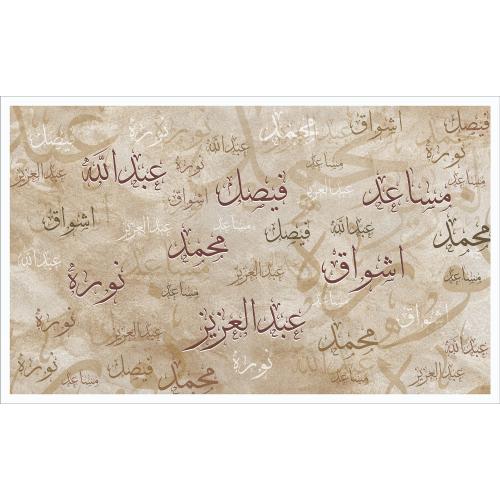 فيصل نورة محمد اشواق فيصل
نورة
عبدالعزيز عبدالله عبدالله مساعد مساعد عبدالعزيز
فيصل مساعد
اشواق عبدالعزيز مساعد فيصل عبدالله محمد
محمد
عبدالله نورة عبدالعزيز اشواق مساعد
مساعد
نورة عبدالعزيز اشواق
نورة عبدالعزيز محمد عبدالله
اشواق مساعد فيصل محمد نورة مساعد عبدالعزيز